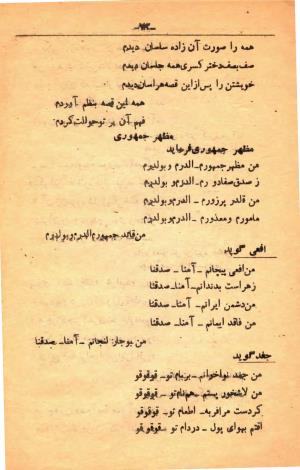 همه را صورت آن زاده ساسان دیدم
صف بصف دختر کسری همه جلسان دیدم
خویشتن را پس از این قصه هراسان دیدم
همه این قصه بنظم آوردم
فهم آن بر تو حوالت کردم
مظهر جمهوری
مظهر جمهوری فرماید
من مظهر جمهورم - الدرم و بولدرم
از صدق و صفا دورم - الدرم و بولدرم
من قلدر پرزورم - الدرم و بولدرم
مامورم و معذورم - الدرم و بولدرم
من قائد جمهورم الدرم و بولدرم
افعی گوید
من افعی پیچانم - آمنا - صدقنا
زهر است بدندانم - آمنا - صدقنا
من دشمن ایرانم - آمنا - صدقنا
من فاقد ایمانم - آمنا - صدقنا
من بوجار لنجانم - آمنا - صدقنا
جغد گوید
من جغد نواخوانم - بر بام تو - قوقوقو
من لاشخور پستم - همنام تو - قوقوقو
گر دست مرا فربه - اطعام تو - قوقوقو
افتم بهوای پول - در دام تو - قوقوقو